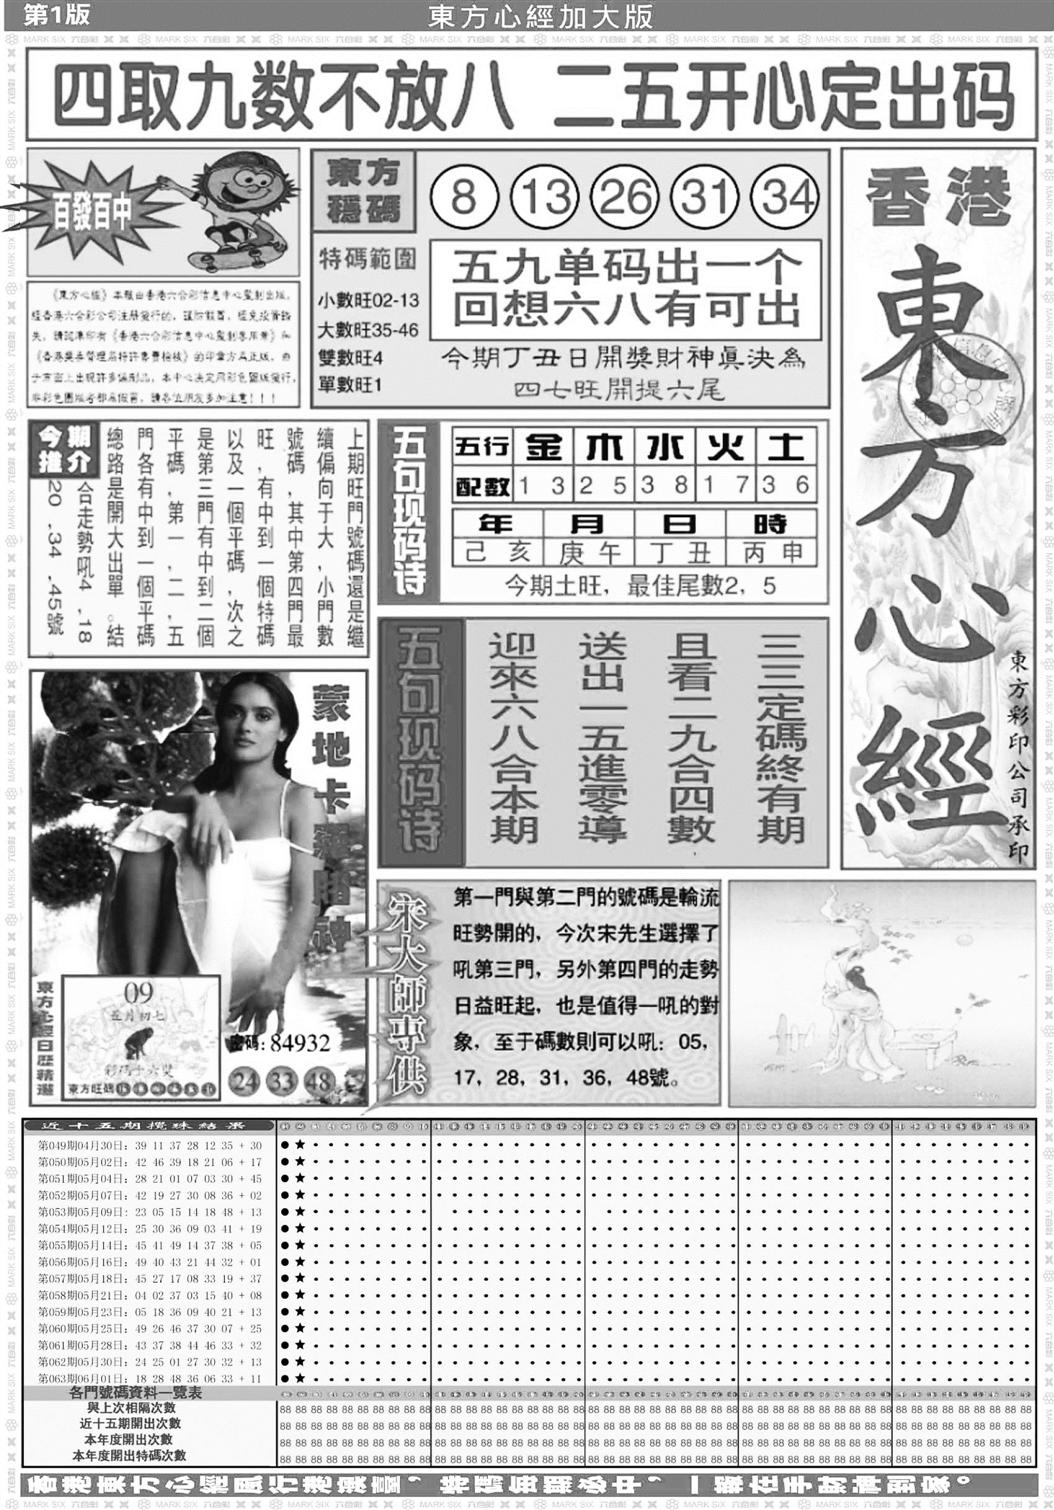 第1版
東方心經加大版
四取九数不放八 二五开心定出码
百發百中
東方
穩碼
8 13 26 31 34
特碼範圍
小數旺02-13
大數旺35-46
雙數旺4
單數旺1
五九单码出一个
回想六八有可出
今期丁丑日開獎財神眞決為
四七旺開提六尾
香港
東方心經
東方彩印公司承印
今期
推介
上期旺門號碼還是繼
續偏向于大,小門數
號碼,其中第四門最
旺,有中到一個特碼
以及一個平碼,次之
是第三門有中到二個
平碼,第一,二,五
門各有中到一個平碼
總路是開大出單。結
合走勢吼4,18
20,34,45號
。
五句现码诗
五行 金 木 水 火 土
配數 1 3 2 5 3 8 1 7 3 6
年 月 日 時
己亥 庚午 丁丑 丙申
今期土旺，最佳尾數2，5
五句现码诗
三三定碼終有期
且看二九合四數
送出一五進零導
迎來六八合本期
蒙地卡羅賭神
東方心經日歷精選
09
五月初七
彩碼十六獎
東方旺碼
密码: 84932
24 33 48
宋大師專供
第一門與第二門的號碼是輪流
旺勢開的，今次宋先生選擇了
吼第三門，另外第四門的走勢
日益旺起，也是值得一吼的對
象，至于碼數則可以吼：05，
17，28，31，36，48號。
近十五期攪珠結果
第049期04月30日: 39 11 37 28 12 35 + 30
第050期05月02日: 42 46 39 18 21 06 + 17
第051期05月04日: 28 21 01 07 03 30 + 45
第052期05月07日: 42 19 27 30 08 36 + 02
第053期05月09日: 23 05 15 14 18 48 + 13
第054期05月12日: 25 30 36 09 03 41 + 19
第055期05月14日: 45 41 49 14 37 38 + 05
第056期05月16日: 49 40 43 21 44 32 + 01
第057期05月18日: 45 27 17 08 33 19 + 37
第058期05月21日: 04 02 37 03 15 40 + 08
第059期05月23日: 05 18 36 09 40 21 + 13
第060期05月25日: 49 26 46 37 30 07 + 25
第061期05月28日: 43 37 38 44 46 33 + 32
第062期05月30日: 24 25 01 27 30 32 + 13
第063期06月01日: 18 28 48 36 06 33 + 11
各門號碼資料一覽表
與上次相隔次數
近十五期開出次數
本年度開出次數
本年度開出特碼次數
香港東方心經風行港澳臺，特碼每期必中，一報在手財神到家。